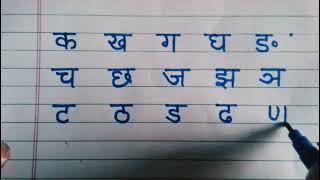 क ख ग घ ङ
च छ ज झ ञ
ट ठ ड ढ ण